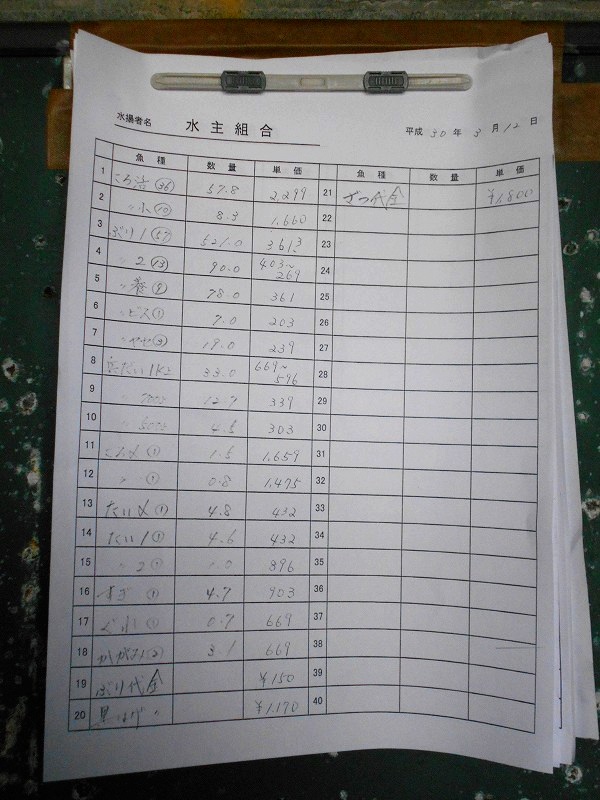 水揚者名 水主組合 平成 30 年 3 月 12 日
魚種 数量 単価 魚種 数量 単価
1 ころ活 (36) 57.8 2.299 21 ざつ代金 ¥1.800
2 〃小 8.3 1.660 22
3 ぶり1 (57) 521.0 3613 23
4 〃2 (13) 90.0 403~269 24
5 〃巻 78.0 361 25
6 〃ビス (1) 7.0 203 26
7 〃ヤセ (3) 19.0 239 27
8 33.0 669~596 28
9 12.7 339 29
10 4.5 303 30
11 (1) 1.5 1.659 31
12 〃 (1) 0.8 1.475 32
13 たい〆 (1) 4.8 432 33
14 たい1 (1) 4.6 432 34
15 〃2 (1) 396 35
16 すぎ (1) 4.7 403 36
17 ぐれ (1) 0.7 669 37
18 かがみ1 (2) 3.1 669 38
19 ぶり代金 ¥150 39
20 黒はげ〃 ¥1.170 40